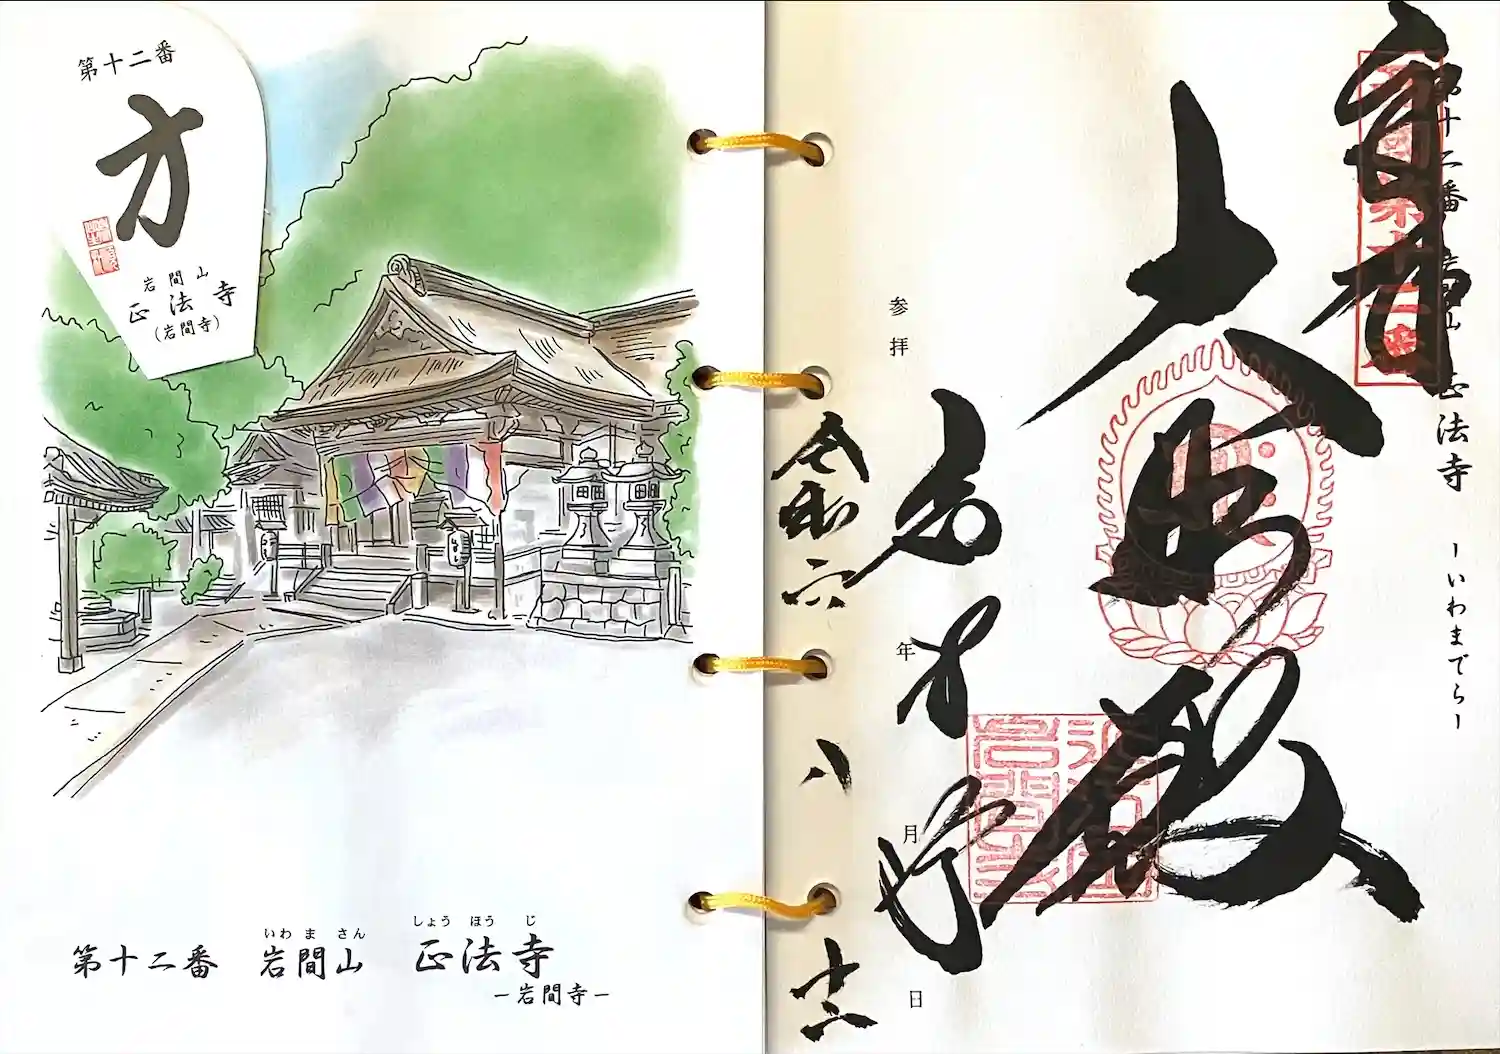 第十二番
方
岩間山
正法寺
(岩間寺)
いわまさん しょうほうじ
第十二番 岩間山 正法寺
ー岩間寺ー
第十二番 岩間山 正法寺 ーいわまでらー
西国第十二番
大悲殿
参拝 年 月 日
令和六 八